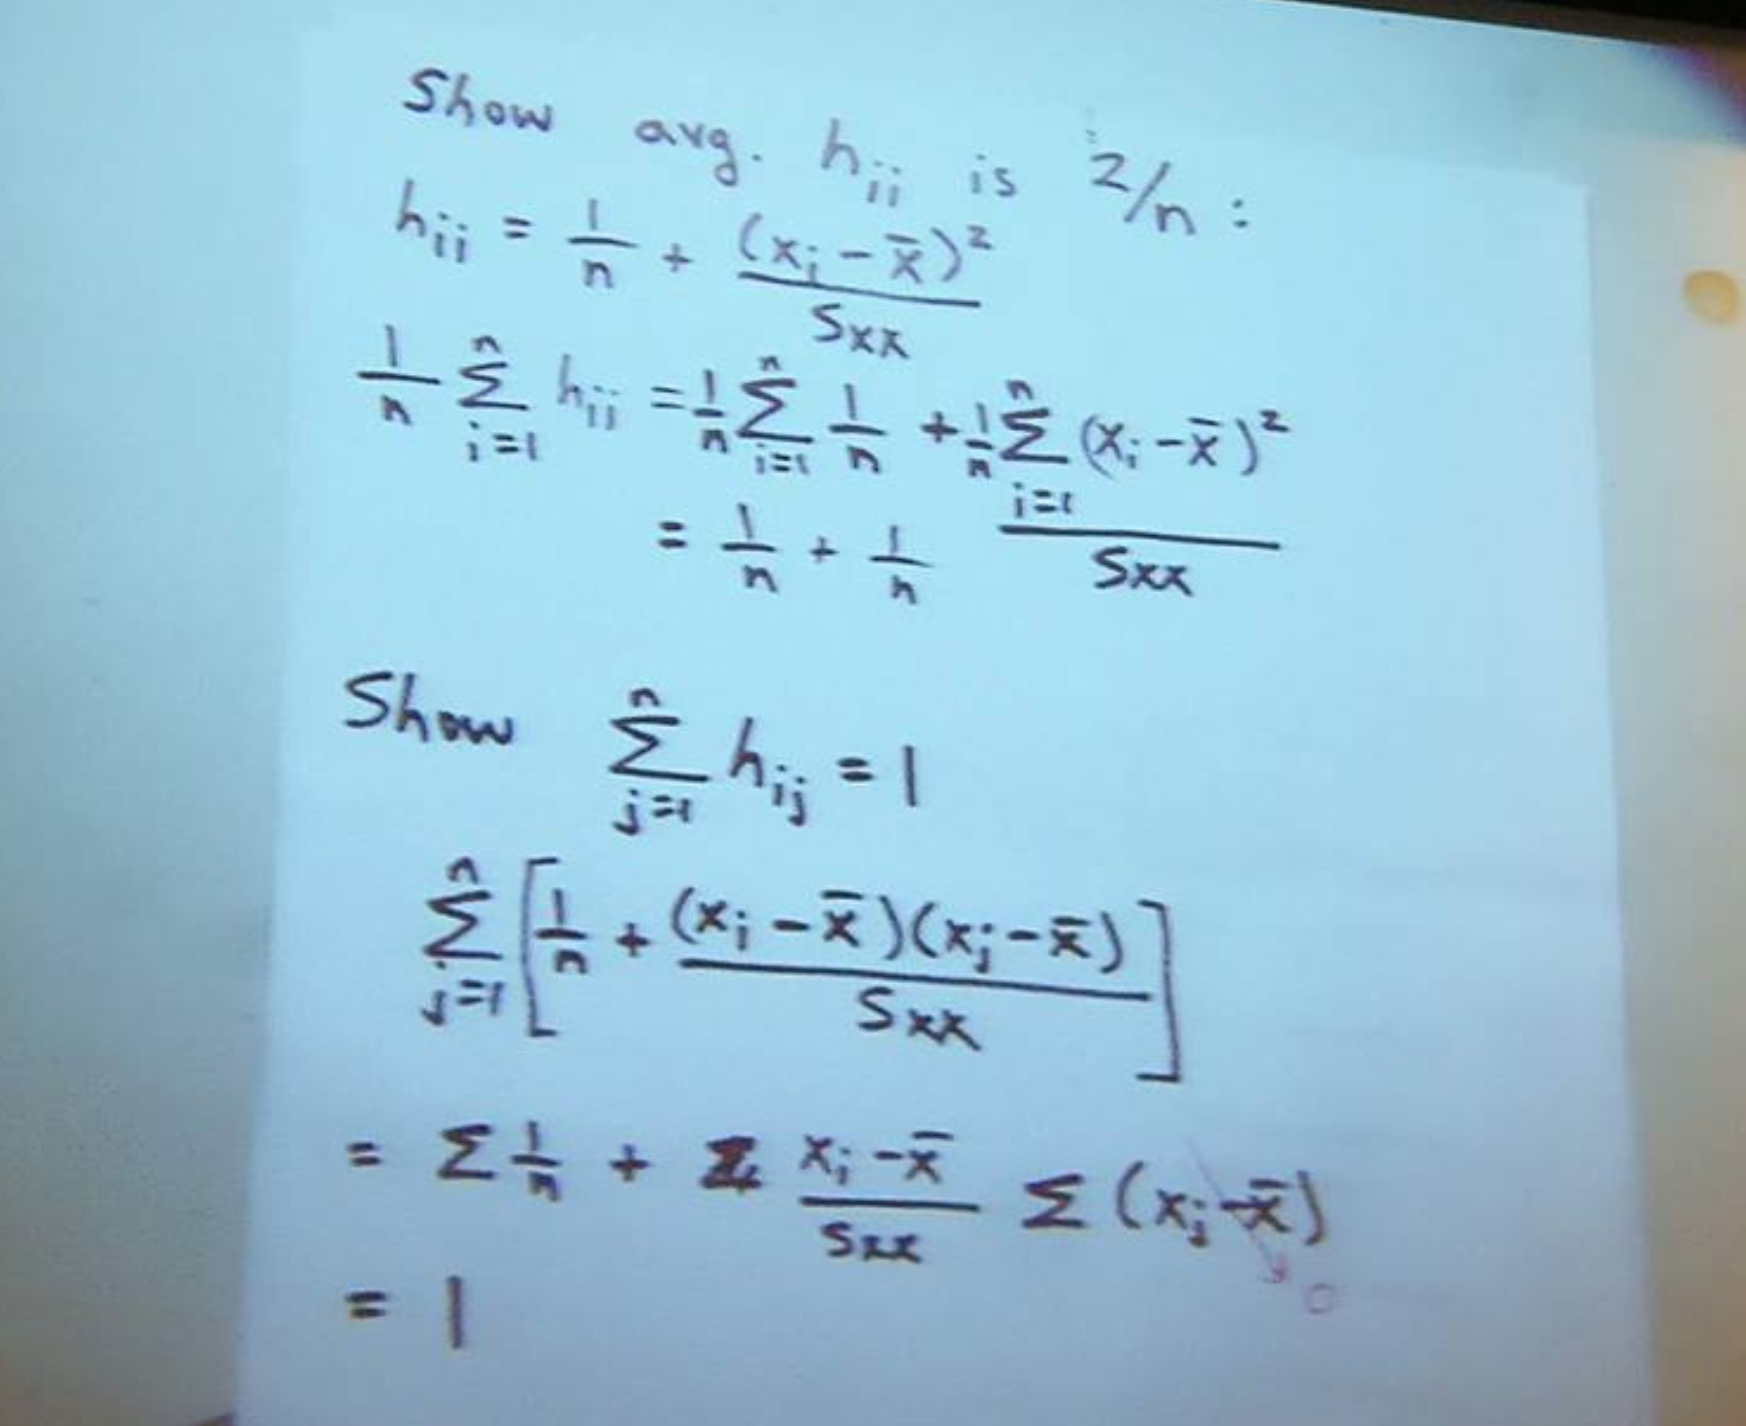 Show avg. hᵢᵢ is 2/n :
hᵢᵢ = 1/n + (xᵢ - x̄)²/Sxx
1/n Σⁿᵢ₌₁ hᵢᵢ = 1/n Σⁿᵢ₌₁ 1/n + 1/n Σⁿᵢ₌₁ (xᵢ - x̄)²/Sxx
= 1/n + 1/n
Show Σⁿⱼ₌₁ hᵢⱼ = 1
Σⁿⱼ₌₁ [1/n + (xᵢ - x̄)(xⱼ - x̄)/Sxx]
= Σ 1/n + (xᵢ - x̄)/Sxx Σ (xⱼ - x̄) → 0
= 1